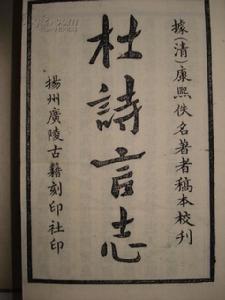 據（清）康熙佚名著者稿本校刊
杜詩言志
揚州廣陵古籍刻印社印